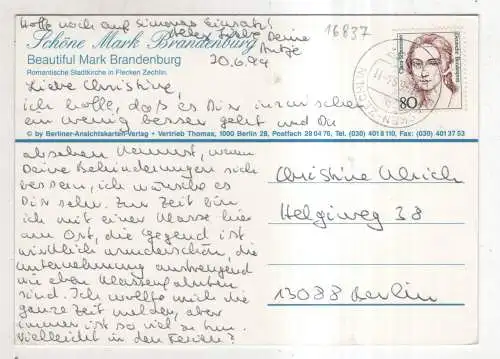 16837
Hoffe noch auf Simones Einsatz!
Alles Liebe, Deine
Antje
Schöne Mark Brandenburg
Beautiful Mark Brandenburg
Romantische Stadtkirche in Flecken Zechlin.
20.6.94
Clara Schumann
Deutsche Bundespost
80
Liebe Christine,
ich hoffe, daß es Dir inzwischen
ein wenig besser geht und Du
© by Berliner-Ansichtskarten-Verlag • Vertrieb Thomas, 1000 Berlin 28, Postfach 28 04 76, Tel. (030) 401 81 10, Fax: (030) 401 37 53
absehen kannst, wann
Deine Behinderungen sich
bessern, ich wünsche es
Dir sehr. Zur Zeit bin
ich mit einer Klasse hier
am Ort, die Gegend ist
wirklich wunderschön, die
Unternehmung anstrengend
wie eben Klassenfahrten
sind. Ich wollte mich die
ganze Zeit melden, aber
immer ist so viel zu tun.
Vielleicht in den Ferien?
Christine Ulrich
Helgiweg 38
13088 Berlin